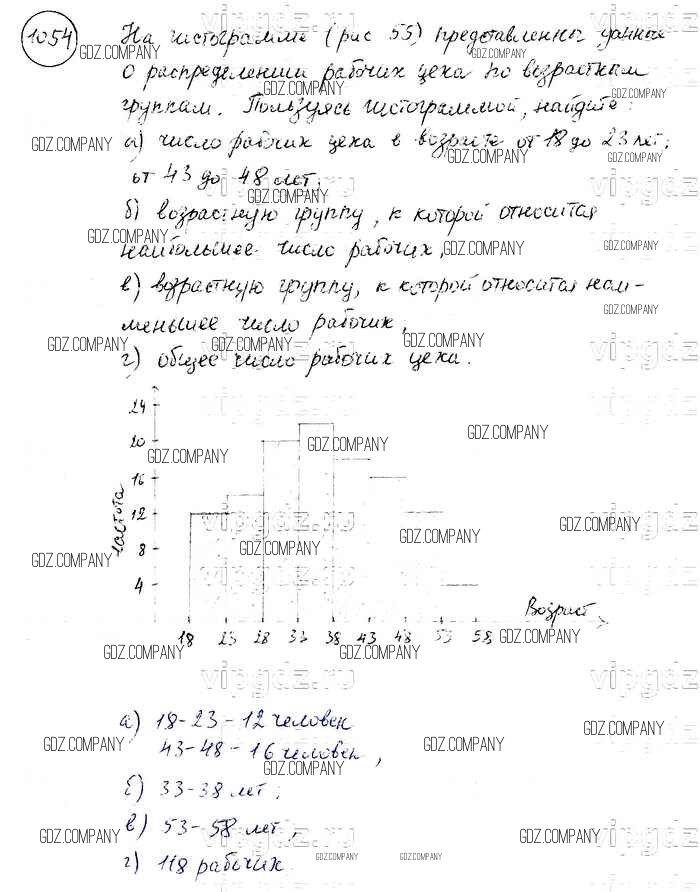 1054 На гистограмме (рис 55) представлены данные
о распределении рабочих цеха по возрастным
группам. Пользуясь гистограммой, найдите:
а) число рабочих цеха в возрасте от 18 до 23 лет;
от 43 до 48 лет;
б) возрастную группу, к которой относится
наибольшее число рабочих,
в) возрастную группу, к которой относится наи-
меньшее число рабочих,
г) общее число рабочих цеха.
24
20
16
12
8
4
частота
Возраст
18 23 28 33 38 43 48 53 58
а) 18-23-12 человек
43-48-16 человек,
б) 33-38 лет;
в) 53-58 лет;
г) 118 рабочих.
GDZ.COMPANY
vipgdz.ru